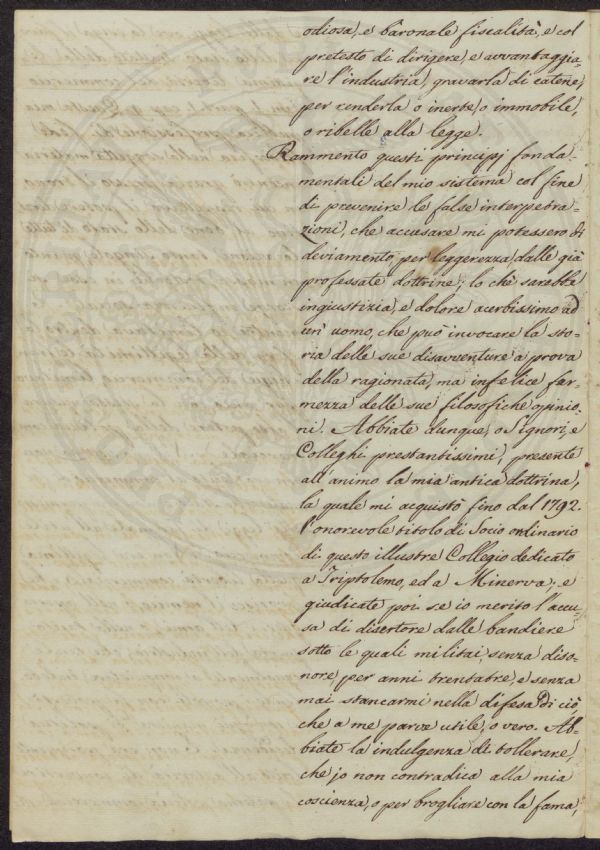 odiosa, e baronale fiscalità, e col
pretesto di dirigere, e avvantaggia-
re l'industria, gravarla di catene,
per renderla o inerte, o immobile,
o ribelle alla legge.
Rammento questi principj fonda-
mentali del mio sistema col fine
di prevenire le false interpetra-
zioni, che accusare mi potessero di
deviamento per leggerezza, dalle già
professate dottrine; lo che sarebbe
ingiustizia, e dolore acerbissimo ad
un' uomo, che può invocare la sto-
ria delle sue disavventure a prova
della ragionata, ma infelice fer-
mezza delle sue filosofiche opinio-
ni. Abbiate dunque, o Signori, e
Colleghi prestantissimi, presente
all'animo la mia antica dottrina,
la quale mi acquistò fino dal 1792.
l'onorevole titolo di Socio ordinario
di questo illustre Collegio dedicato
a Triptolemo, ed a Minerva; e
giudicate poi se io merito l'accu-
sa di disertore dalle bandiere
sotto le quali militai, senza diso-
nore, per anni trentatre, e senza
mai stancarmi nella difesa di ciò,
che a me parve utile, o vero. Ab-
biate la indulgenza di tollerare,
che io non contradica alla mia
coscienza, o per brogliare con la fama,